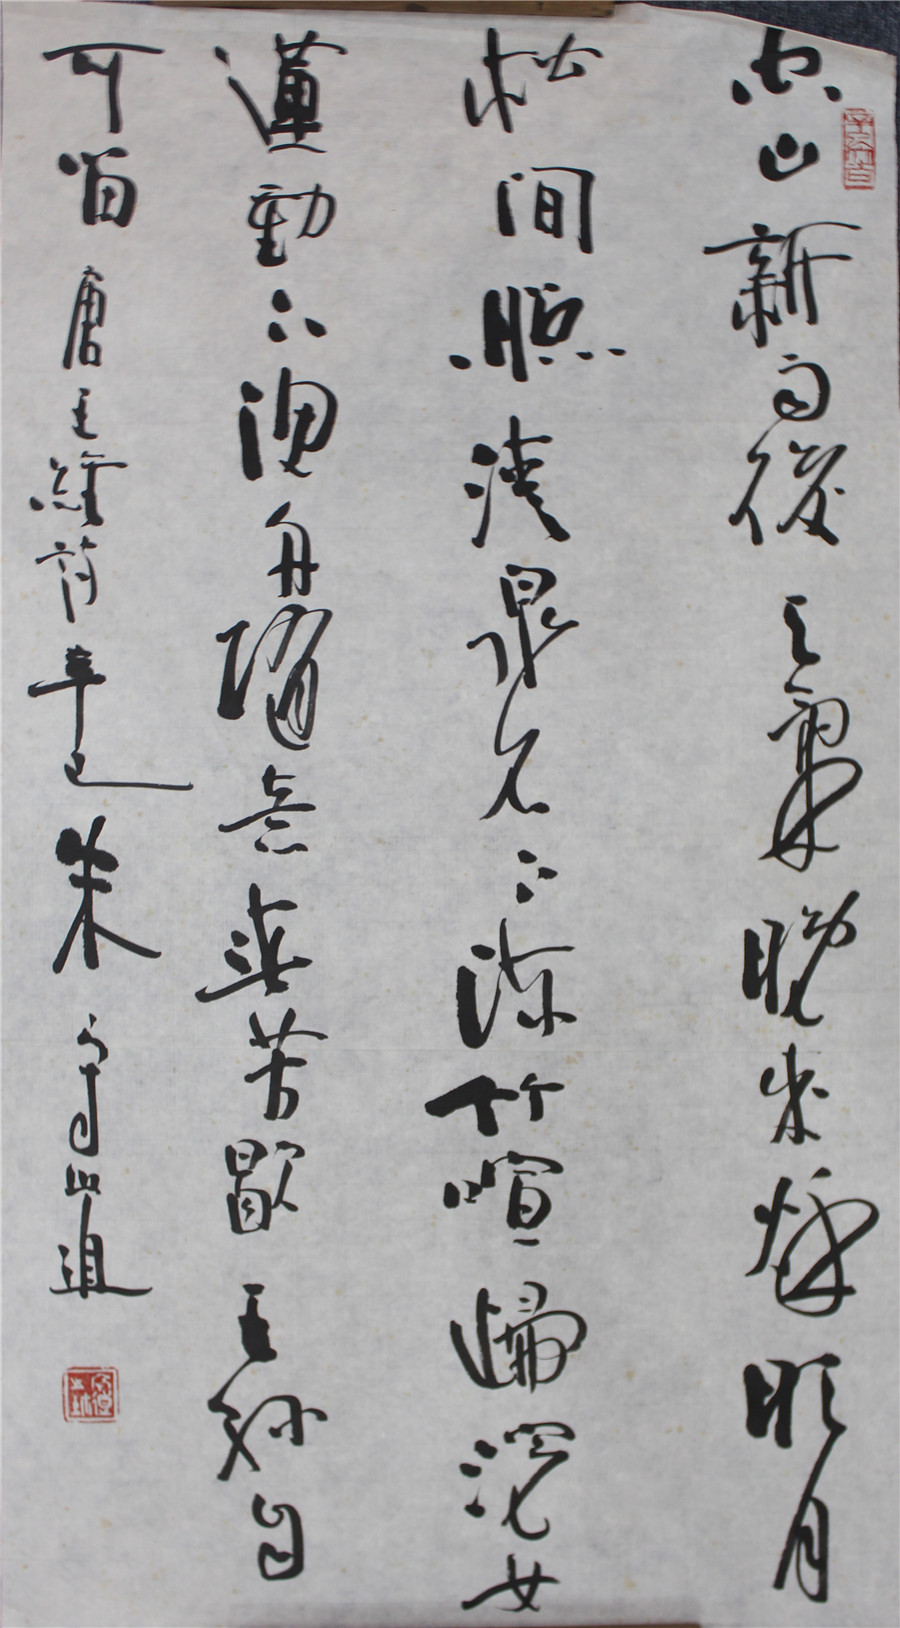 空山新雨後天氣晚來秋明月
松間照清泉石上流竹喧歸浣女
蓮動下漁舟隨意春芳歇王孫自
可留唐王維詩辛巳朱守道